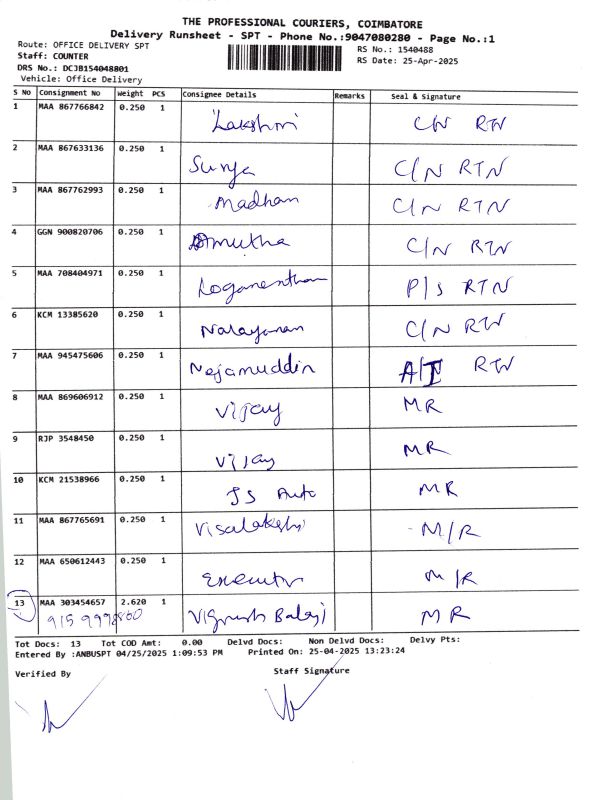 THE PROFESSIONAL COURIERS, COIMBATORE
Delivery Runsheet - SPT - Phone No.:9047080280 - Page No.:1
Route: OFFICE DELIVERY SPT
Staff: COUNTER
DRS No.: DCJB154048801
Vehicle: Office Delivery
RS No.: 1540488
RS Date: 25-Apr-2025
S No Consignment No Weight PCS Consignee Details Remarks Seal & Signature
1 MAA 867766842 0.250 1 Lakshmi C/N RTN
2 MAA 867633136 0.250 1 Surya C/N RTN
3 MAA 867762993 0.250 1 Madhan C/N RTN
4 GGN 900820706 0.250 1 Amutha C/N RTN
5 MAA 708404971 0.250 1 Loganenthan P/S RTN
6 KCM 13385620 0.250 1 Narayanan C/N RTN
7 MAA 945475606 0.250 1 Nejamuddin A/I RTN
8 MAA 869606912 0.250 1 Vijay MR
9 RJP 3548450 0.250 1 Vijay MR
10 KCM 21538966 0.250 1 JS Auto MR
11 MAA 867765691 0.250 1 Visalakshi M/R
12 MAA 650612443 0.250 1 Executiv M/R
13 MAA 303454657 2.620 1 Vignesh Balaji MR
915 9998860
Tot Docs: 13 Tot COD Amt: 0.00 Delvd Docs: Non Delvd Docs: Delvy Pts:
Entered By :ANBUSPT 04/25/2025 1:09:53 PM Printed On: 25-04-2025 13:23:24
Verified By Staff Signature